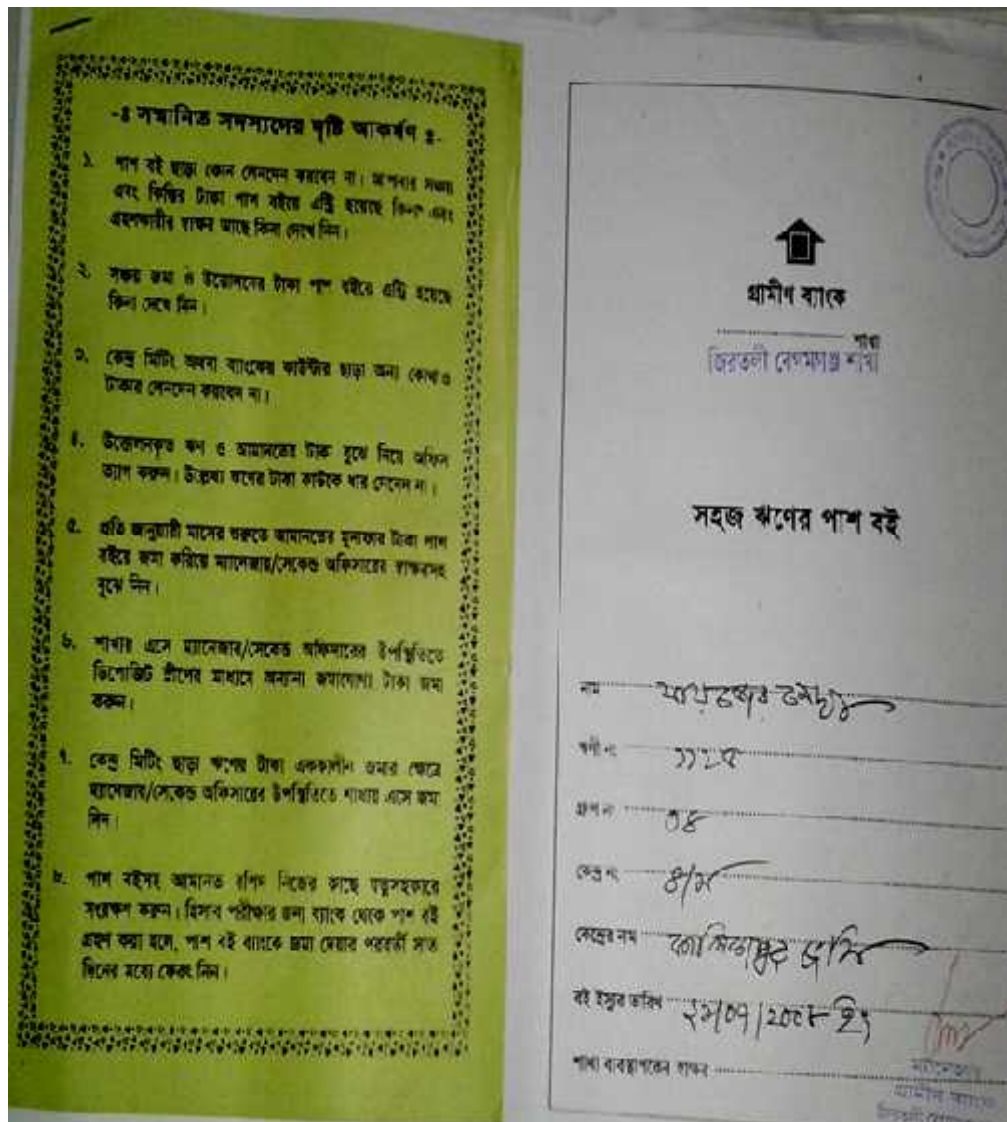 -ঃ সম্মানিত সদস্যদের দৃষ্টি আকর্ষণ ঃ-
১. পাশ বই ছাড়া কোন লেনদেন করবেন না। আপনার সঞ্চয়
এবং কিস্তির টাকা পাশ বইয়ে এন্ট্রি হয়েছে কিনা এবং
গ্রহণকারীর স্বাক্ষর আছে কিনা দেখে নিন।
২. সঞ্চয় জমা ও উত্তোলনের টাকা পাশ বইয়ে এন্ট্রি হয়েছে
কিনা দেখে নিন।
৩. কেন্দ্র মিটিং অথবা ব্যাংকের কাউন্টার ছাড়া অন্য কোথাও
টাকার লেনদেন করবেন না।
৪. উত্তোলনকৃত ঋণ ও আমানতের টাকা বুঝে নিয়ে অফিস
ত্যাগ করুন। উল্লেখ্য ঋণের টাকা কাউকে ধার দেবেন না।
৫. প্রতি জানুয়ারী মাসের শুরুতে আমানতের মুনাফার টাকা পাশ
বইয়ে জমা করিয়ে ম্যানেজার/সেকেন্ড অফিসারের স্বাক্ষরসহ
বুঝে নিন।
৬. শাখায় এসে ম্যানেজার/সেকেন্ড অফিসারের উপস্থিতিতে
ডিপোজিট স্লীপের মাধ্যমে অন্যান্য জমাযোগ্য টাকা জমা
করুন।
৭. কেন্দ্র মিটিং ছাড়া ঋণের টাকা এককালীন জমার ক্ষেত্রে
ম্যানেজার/সেকেন্ড অফিসারের উপস্থিতিতে শাখায় এসে জমা
দিন।
৮. পাশ বইসহ আমানত রশিদ নিজের কাছে যত্নসহকারে
সংরক্ষণ করুন। হিসাব পরীক্ষার জন্য ব্যাংক থেকে পাশ বই
গ্রহণ করা হলে, পাশ বই ব্যাংকে জমা দেয়ার পরবর্তী সাত
দিনের মধ্যে ফেরৎ নিন।
গ্রামীণ ব্যাংক
শাখা
জিরতলী বেগমগঞ্জ শাখা
সহজ ঋণের পাশ বই
নাম
ঋণী নং
গ্রুপ নং ০৪
কেন্দ্র নং ৪/ম
কেন্দ্রের নাম
বই ইস্যুর তারিখ
শাখা ব্যবস্থাপকের স্বাক্ষর
ম্যানেজার
গ্রামীণ ব্যাংক